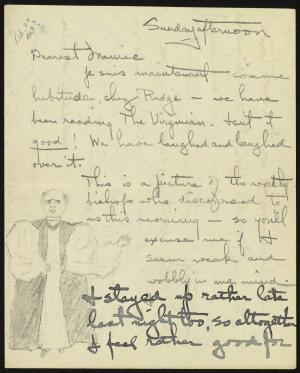 Sunday afternoon
Dearest Mamie
je suis maintenant comme
habitude, chez Pudge – we have
been reading The Virginian. Isn't it
good! We have laughed and laughed
over it.
This is a picture of the worthy
bishop who discoursed to
us this morning – so you'll
excuse me if I
seem weak and
wobbly in my mind.
I stayed up rather late
last night too, so altogether
I feel rather good for